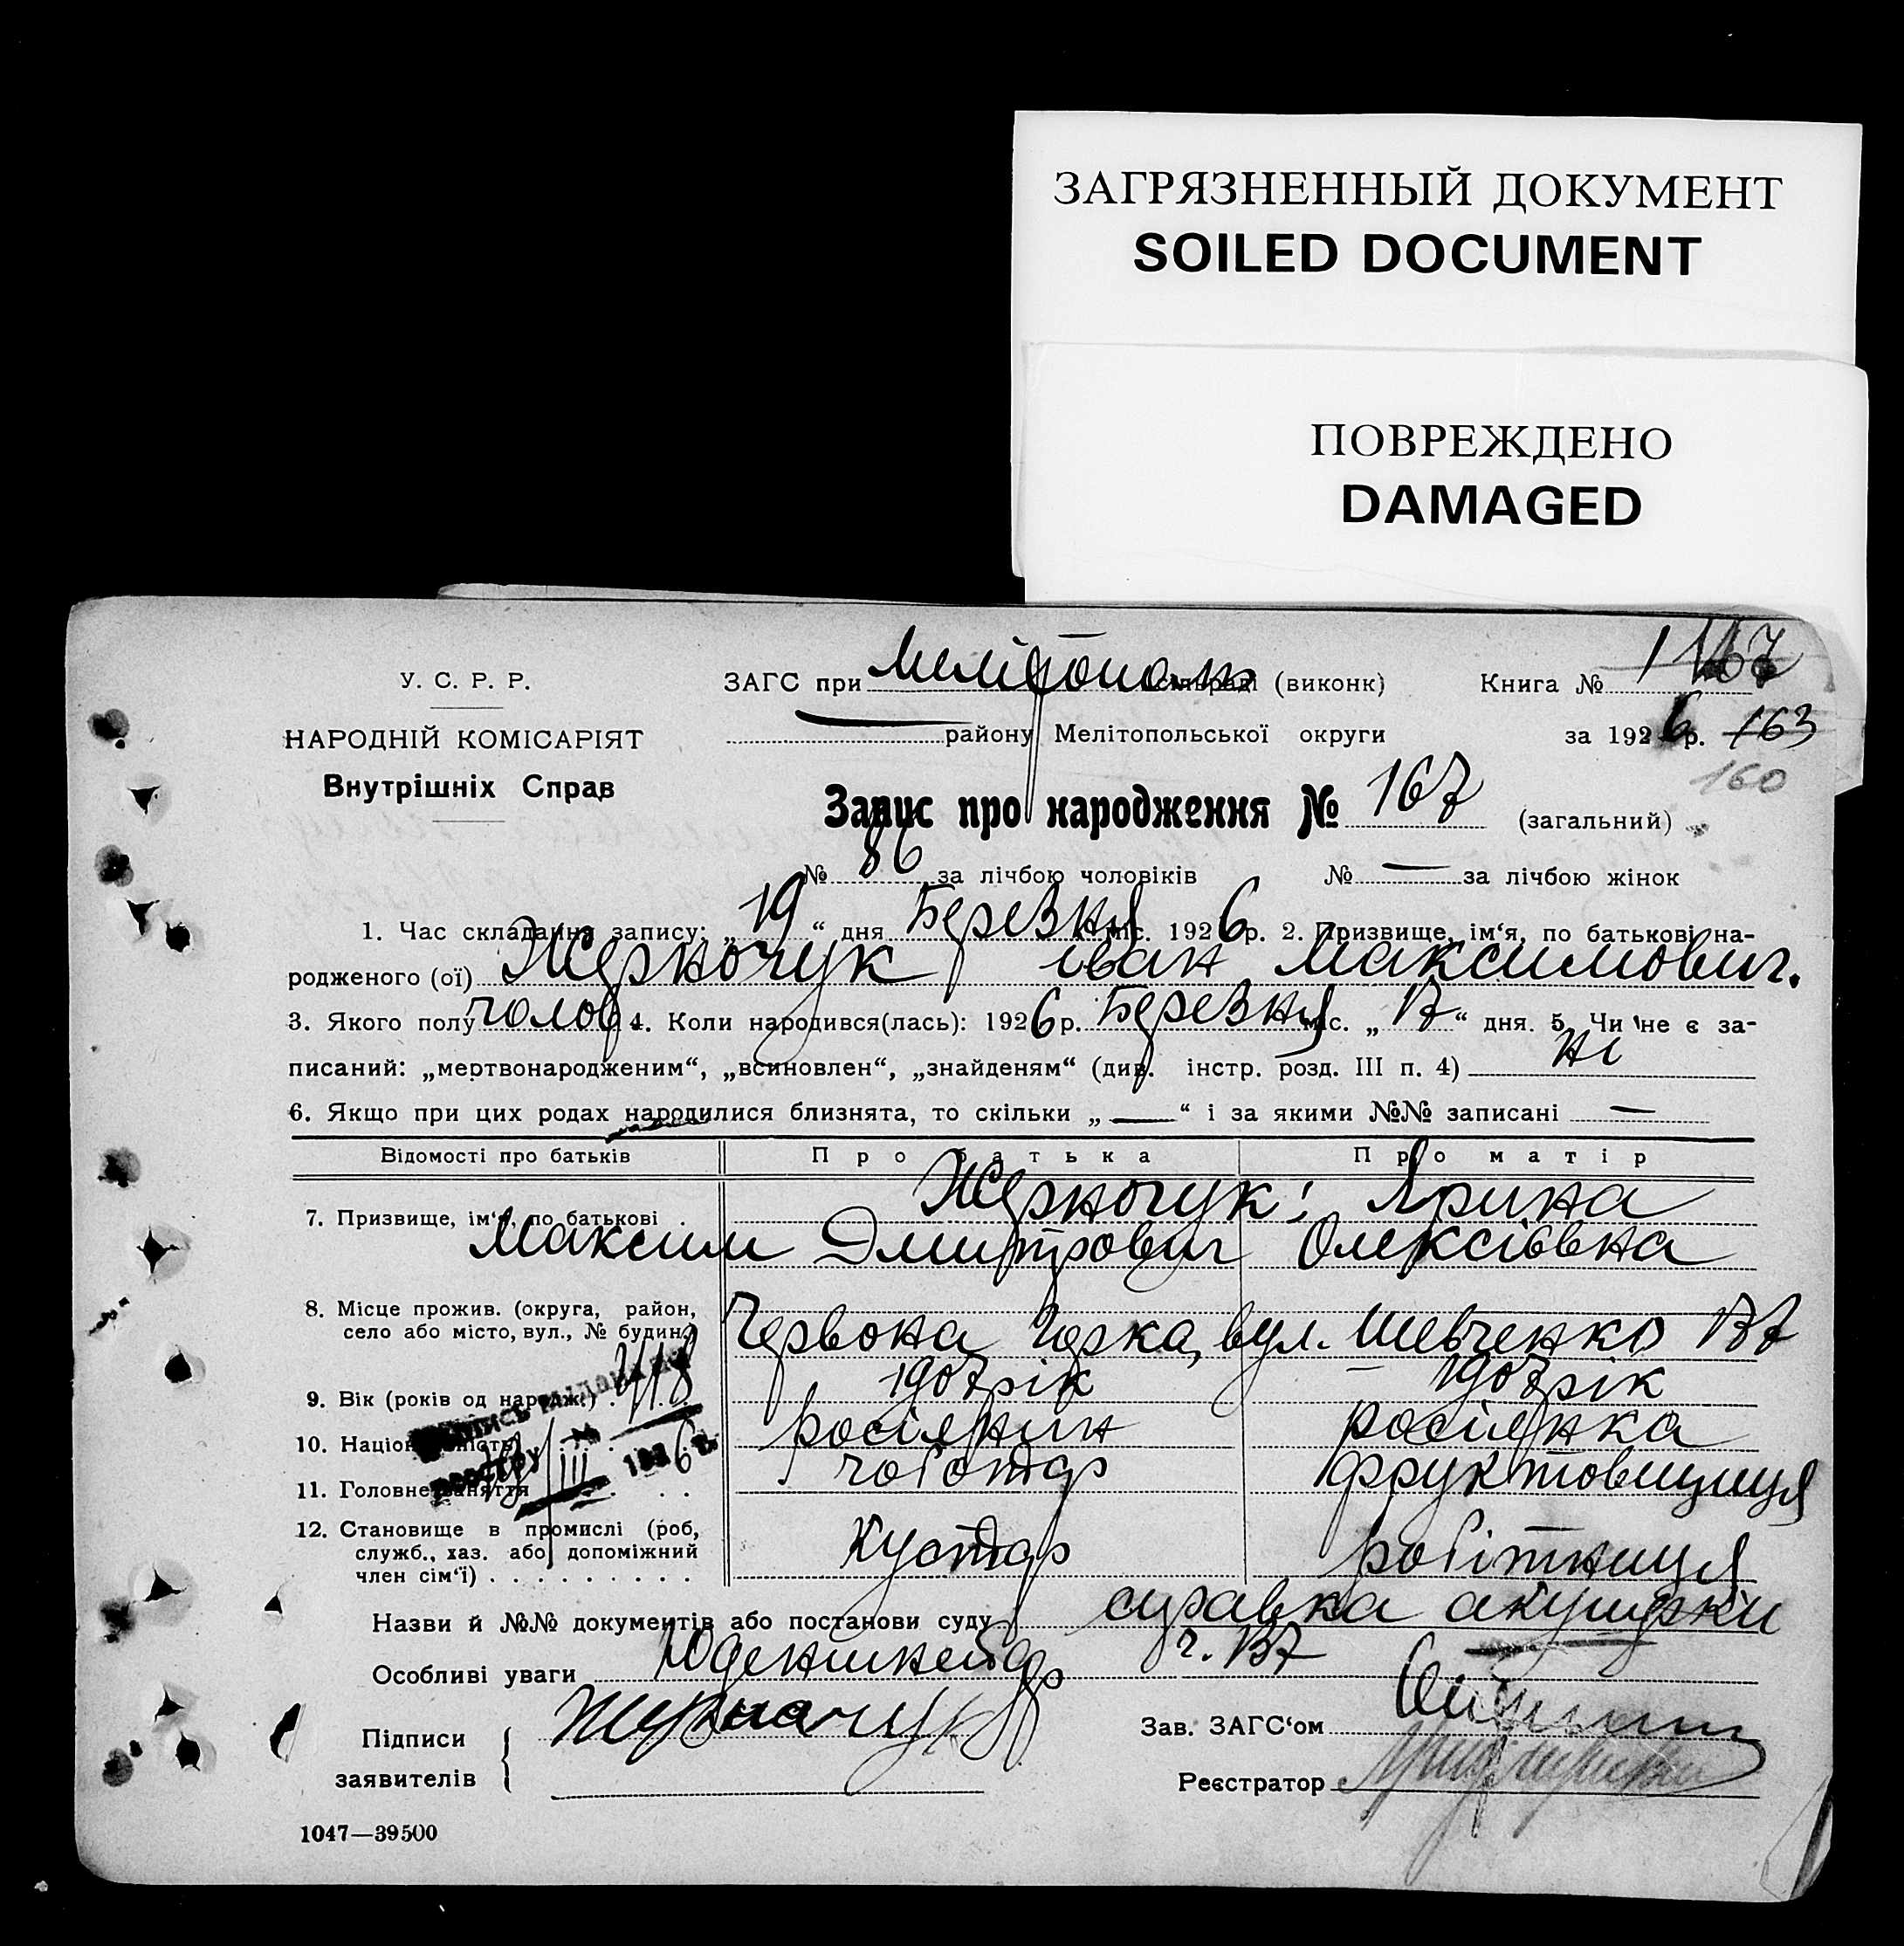 ЗАГРЯЗНЕННЫЙ ДОКУМЕНТ
SOILED DOCUMENT
ПОВРЕЖДЕНО
DAMAGED
У. С. Р. Р.
НАРОДНІЙ КОМІСАРІЯТ
Внутрішніх Справ
ЗАГС при Мелітополь сільраді (виконк) Книга № 1 167
— району Мелітопольської округи за 1926 р. 163
160
Запис про народження № 167 (загальний)
№ 86 за лічбою чоловіків № — за лічбою жінок
1. Час складання запису: „19“ дня Березня міс. 1926 р. 2. Призвище, ім‘я, по батькові на-
родженого (ої) Жерночук іван Максимович.
3. Якого полу чолов 4. Коли народився(лась): 1926 р. Березня міс. „17“ дня. 5. Чи не є за-
писаний: „мертвонародженим“, „всиновлен“, „знайденям“ (див. інстр. розд. III п. 4) ні
6. Якщо при цих родах народилися близнята, то скільки „—“ і за якими №№ записані —
Відомості про батьків Про батька Про матір
7. Призвище, ім‘я, по батькові . Жерночук: Ярина
Максим Дмитрович Олексіївна
8. Місце прожив. (округа, район,
село або місто, вул., № будин.) Червона Горка, вул. Шевченко 137
9. Вік (років од народж.) . 1907 рік 1907 рік
10. Національність росіянин росіянка
11. Головне заняття чоботар фруктовщиця
12. Становище в промислі (роб,
служб., хаз. або допоміжний
член сім‘ї) . . . . . . . . . Кустар робітниця
Назви й №№ документів або постанови суду справка акушерки
Особливі уваги ч. 137
Підписи
заявителів
Зав. ЗАГС‘ом
Реєстратор
1047—39500